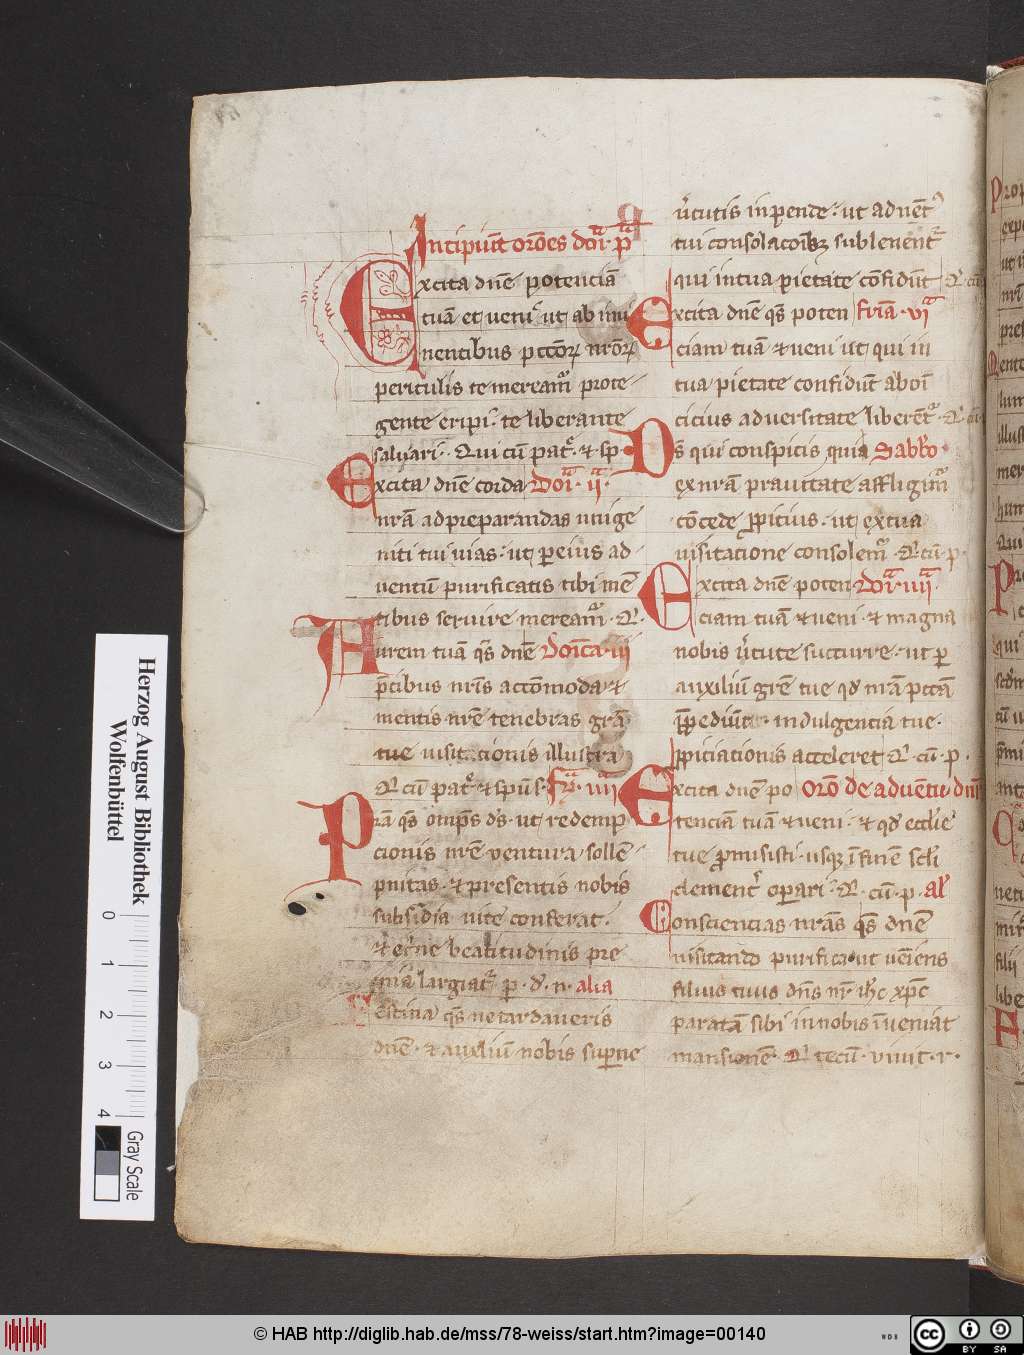 Incipiūt orōes doī.c p̄a
Excita dn̄e potenciā
tuā et veni ut ab imi
nentibus pctōꝝ nrōꝝ
periculis te mereamᷣ prote
gente eripi. te liberante
saluari. Qui cū patᷣ. et sp.
Excita dn̄e corda Doī. ii.
nrā ad preparandas unige
niti tui uias. ut ꝑ eius ad
ventū purificatis tibi mē
tibus seruire mereamᷣ. Q.
Aurem tuā qs̄ dn̄e Doīca iii
p̄cibus nrīs accōmoda et
mentis nrē tenebras grā
tue uisitacionis illustra
Q cū patᷣ et spū s. Fr̄. iiii
Pr̄a qs̄ omp̄s ds̄. ut redemp
cionis nrē ventura solle
pnitas. et presentis nobis
subsidia uite conferat.
et et̄ne beatitudinis pre
mia largiatᷣ. p. d. n. alia
Festina qs̄ ne tardaueris
dn̄e. et auxiliū nobis suꝑne
v̄tutis inpende. ut aduent᷒
tui consolacōibꝫ subleuentᷣ
qui in tua pietate cōfidūt Q cū
Excita dn̄e qs̄ poten Friā. vi
ciam tuā et ueni ut qui in
tua pietate confidūt ab oī
cicius aduersitate liberētᷣ. Q cū
Ds̄ qui conspicis quia Sabb̄o.
ex nrā prauitate affligimᷣ
cōcede ꝓpicius. ut ex tua
uisitatione consolemᷣ. Q cū. p.
Excita dn̄e poten Doī. iiii.
ciam tuā et ueni. et magna
nobis v̄tute succurre. ut ꝑ
auxiliū grē tue qd̄ nrā pctā
p̄pediūt. indulgencia tue.
ꝓpiciacionis acceleret Q cū. p.
Excita dn̄e po Orō de aduentu dn̄i
tenciā tuā et ueni. et qd̄ eccl̄ie
tue ꝓmisisti. usqꝫ ī finē scl̄i
clement̄ oꝑari. Q. cū. p. al̄
Consciencias nrās qs̄ dn̄e
uisitando purifica. ut ueniens
filius tuus dn̄s nr̄ ih̄c xp̄c
paratā sibi in nobis īueniat
mansionē. Q tecū. viuit. r.
Herzog August Bibliothek
Wolfenbüttel
0 1 2 3 4
Gray Scale
© HAB http://diglib.hab.de/mss/78-weiss/start.htm?image=00140
WDB
cc BY SA